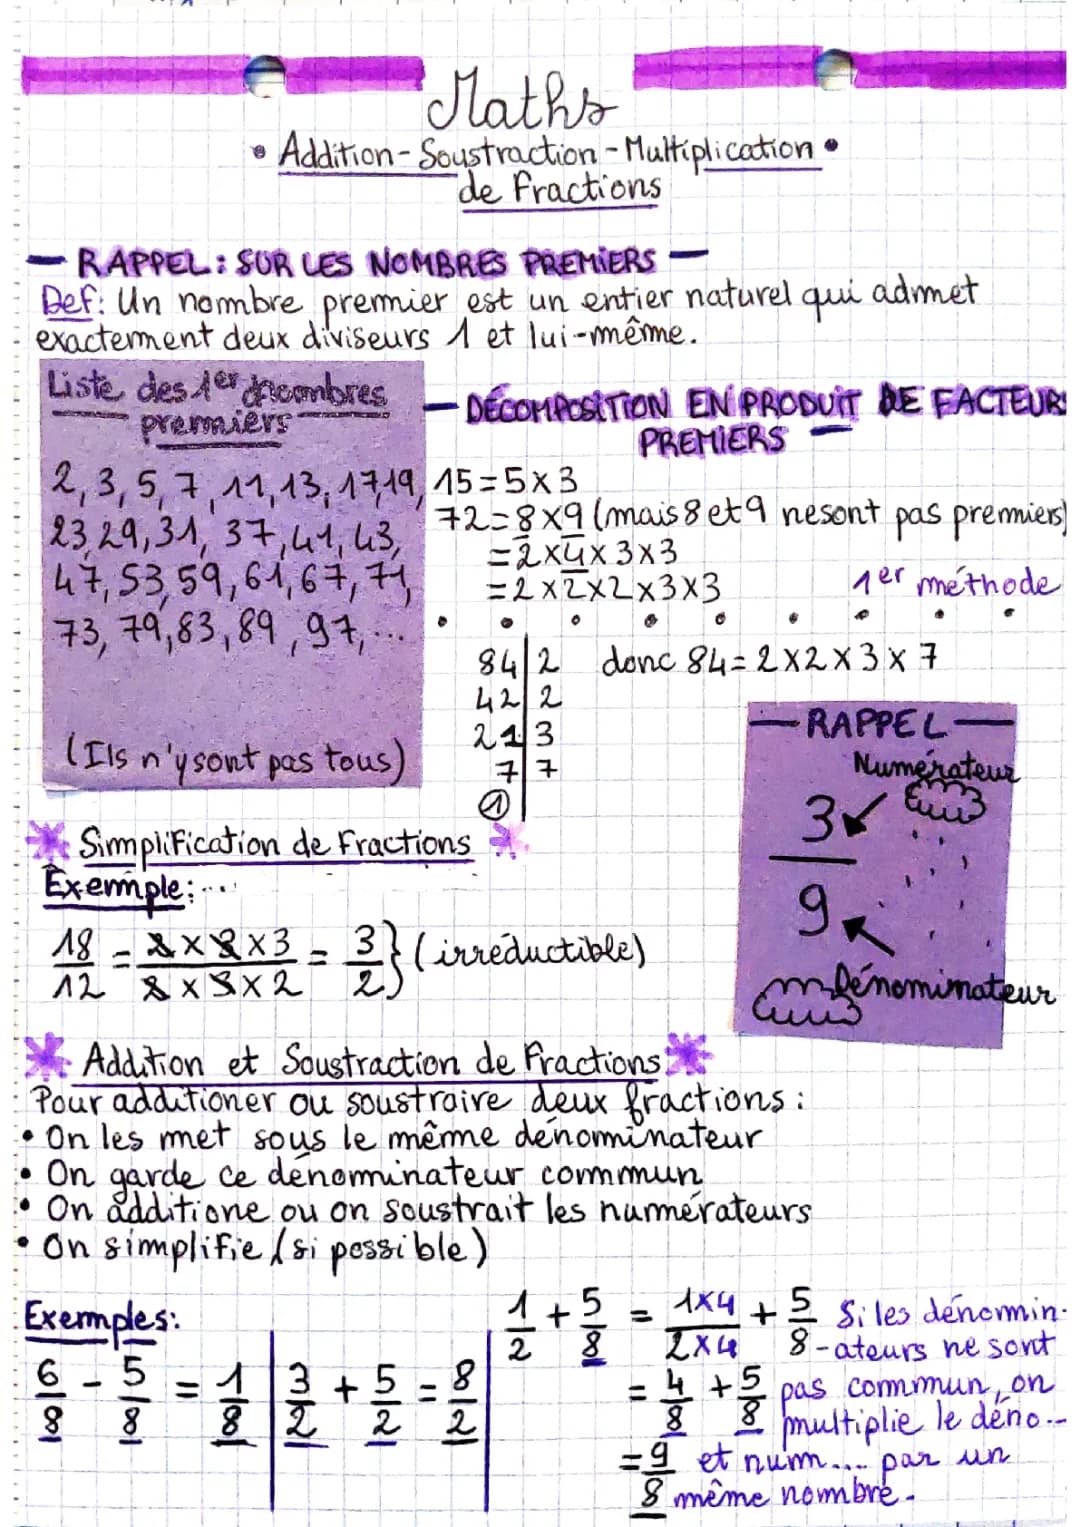 Maths
• Addition - Soustraction - Multiplication •
de fractions
— RAPPEL : SUR LES NOMBRES PREMIERS —
Def: Un nombre premier est un entier naturel qui admet
exactement deux diviseurs 1 et lui-même.
Liste des 1er nombres
premiers
2, 3, 5, 7, 11, 13, 17, 19,
23, 29, 31, 37, 41, 43,
47, 53, 59, 61, 67, 71,
73, 79, 83, 89, 97, ...
(Ils n'y sont pas tous)
— DÉCOMPOSITION EN PRODUIT DE FACTEURS
PREMIERS —
15 = 5 x 3
72 = 8 x 9 (mais 8 et 9 ne sont pas premiers)
= 2 x 4 x 3 x 3
= 2 x 2 x 2 x 3 x 3 1er méthode
84 | 2 donc 84 = 2 x 2 x 3 x 7
42 | 2
21 | 3
7 | 7
1
— RAPPEL —
Numérateur
3
9
Dénominateur
Simplification de fractions
Exemple: ...
18/12 = 2 x 3 x 3 / 2 x 3 x 2 = 3/2 } (irréductible)
Addition et Soustraction de fractions
Pour additioner ou soustraire deux fractions :
• On les met sous le même dénominateur
• On garde ce dénominateur commun
• On additione ou on soustrait les numérateurs
• On simplifie (si possible)
Exemples:
6/8 - 5/8 = 1/8
3/2 + 5/2 = 8/2
1/2 + 5/8 = 1x4/2x4 + 5/8
= 4/8 + 5/8
= 9/8
Si les dénomin-
-ateurs ne sont
pas commun, on
multiplie le déno...
et num.... par un
même nombre.